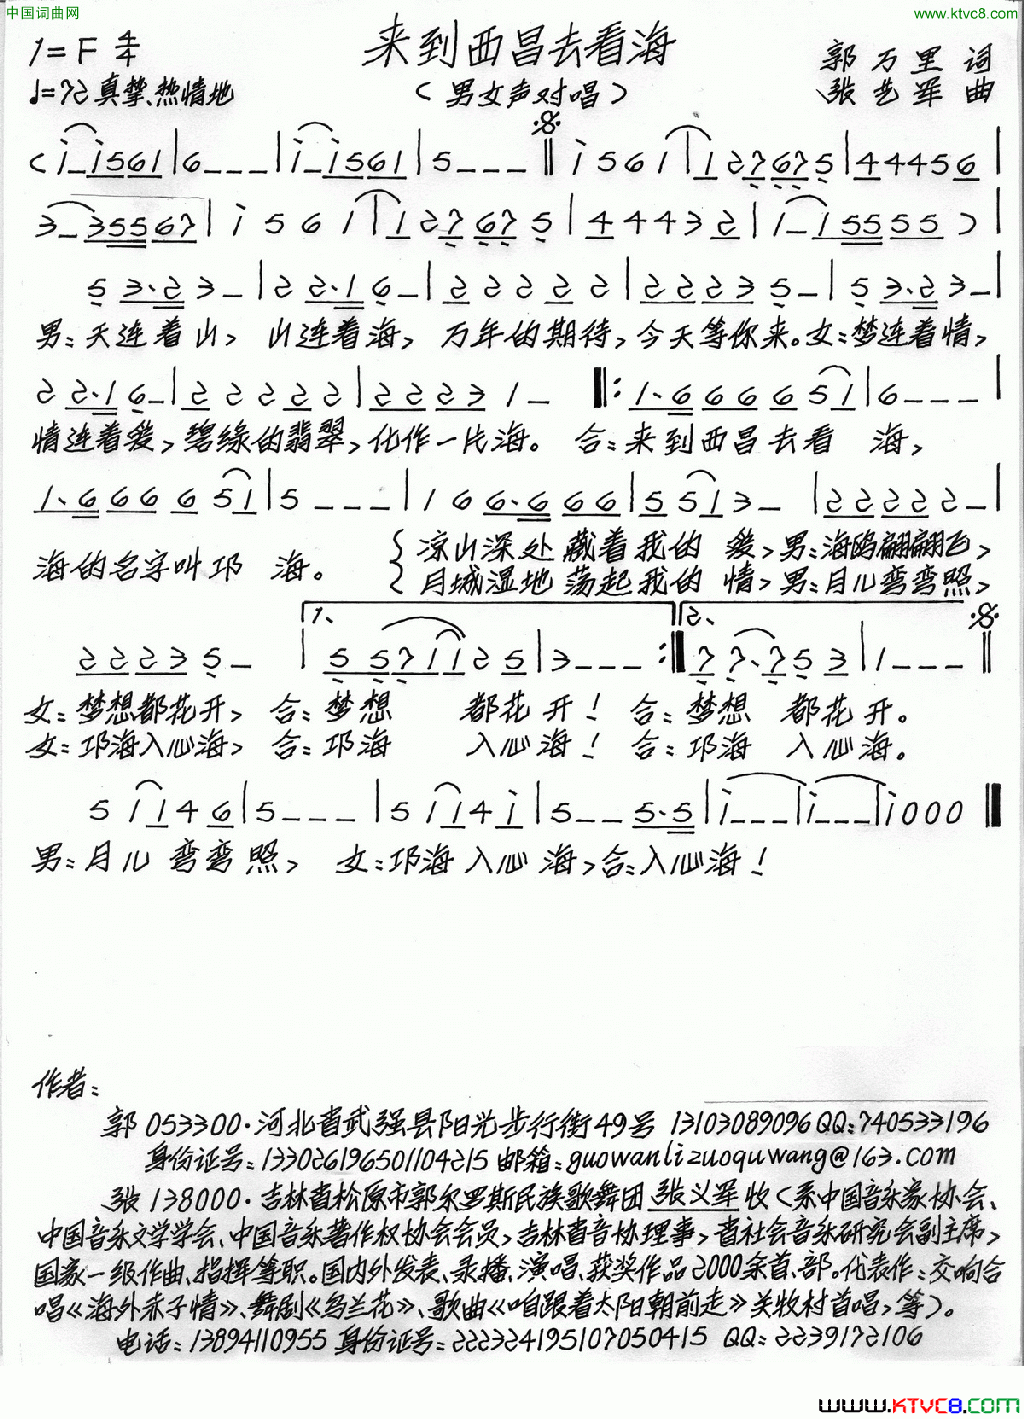 中国词曲网
www.ktvc8.com
1=F 4/4
来到西昌去看海
郭万里 词
♩=72 真挚、热情地
(男女声对唱)
张艺军 曲
(i_i561|6___|i_i561|5___‖i561|127675|44456|
3_35567|i561|127675|44432|1_15555)|
53·23_|22·16_|22222|22235_|53·23_|
男:天连着山, 山连着海, 万年的期待,今天等你来。女:梦连着情,
22·16_|22222|22231_‖:1·666651|6___|
情连着爱,碧绿的翡翠,化作一片海。 合:来到西昌去看 海,
1·666651|5___|166·666|5513_|22222_|
海的名字叫邛 海。
凉山深处 藏着我的 爱,男:海鸥翩翩飞,
月城湿地 荡起我的 情,男:月儿弯弯照,
22235_|1. 5571125|3___:‖2. 77·753|1___‖
女:梦想都花开, 合:梦想 都花开! 合:梦想 都花开。
女:邛海入心海, 合:邛海 入心海! 合:邛海 入心海。
51146|5___|5114i|5__5·5|i___|i___|i000‖
男:月儿弯弯照, 女:邛海入心海,合:入心海!
作者:
郭 053300·河北省武强县阳光步行街49号 13103089096 QQ:740533196
身份证号:133026196501104215 邮箱:guowanlizuoquwang@163.com
张 138000·吉林省松原市郭尔罗斯民族歌舞团 张义军收(系中国音乐家协会、
中国音乐文学学会、中国音乐著作权协会会员,吉林省音协理事,省社会音乐研究会副主席,
国家一级作曲、指挥等职。国内外发表、录播、演唱、获奖作品2000余首、部。代表作:交响合
唱《海外赤子情》、舞剧《乌兰花》、歌曲《咱跟着太阳朝前走》关牧村首唱,等)。
电话:13894110955 身份证号:222324195107050415 QQ:2239172106
www.KTVC8.com